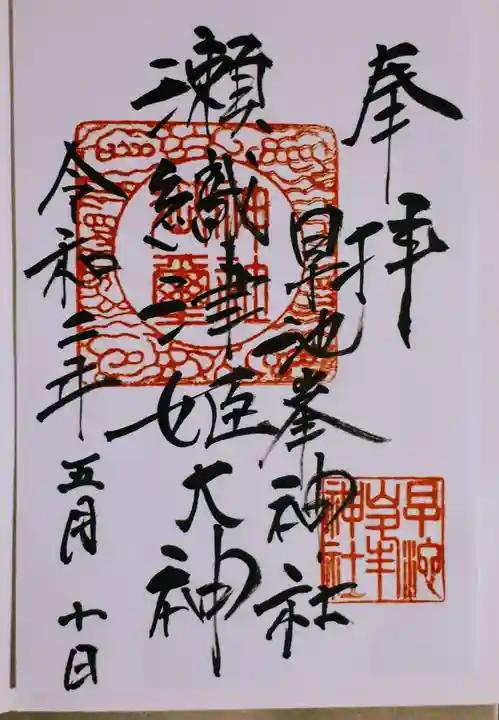 奉拝
早池峯神社
瀬織津姫大神
令和二年五月十日
早池
峯
神社